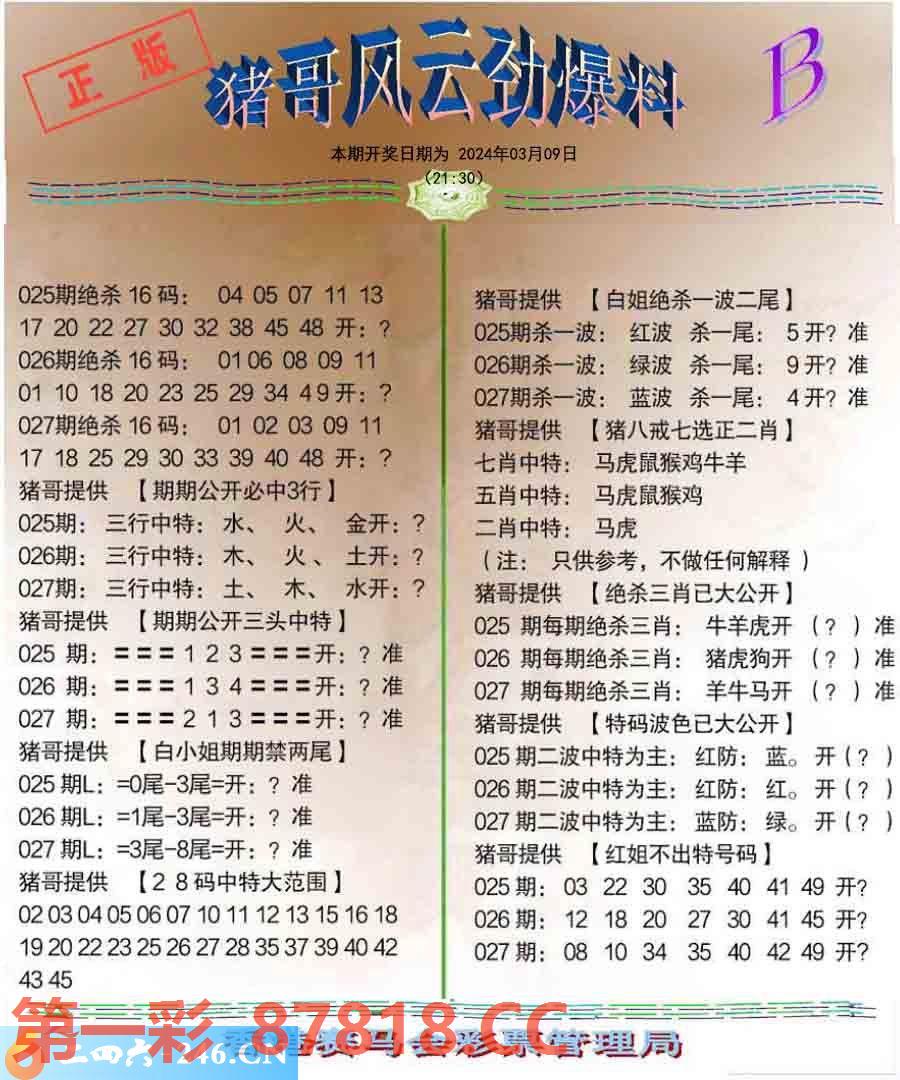 正版
猪哥风云劲爆料
B
本期开奖日期为 2024年03月09日
(21:30)
025期绝杀16码： 04 05 07 11 13
17 20 22 27 30 32 38 45 48 开：？
026期绝杀16码： 01 06 08 09 11
01 10 18 20 23 25 29 34 49开：？
027期绝杀16码： 01 02 03 09 11
17 18 25 29 30 33 39 40 48 开：？
猪哥提供 【期期公开必中3行】
025期：三行中特：水、 火、 金开：？
026期：三行中特：木、 火、 土开：？
027期：三行中特：土、 木、 水开：？
猪哥提供 【期期公开三头中特】
025 期：===123===开：？准
026 期：===134===开：？准
027 期：===213===开：？准
猪哥提供 【白小姐期期禁两尾】
025期L：=0尾-3尾=开：？准
026期L：=1尾-3尾=开：？准
027期L：=3尾-8尾=开：？准
猪哥提供 【28码中特大范围】
02 03 04 05 06 07 10 11 12 13 15 16 18
19 20 22 23 25 26 27 28 35 37 39 40 42
43 45
猪哥提供 【白姐绝杀一波二尾】
025期杀一波： 红波 杀一尾： 5开？准
026期杀一波： 绿波 杀一尾： 9开？准
027期杀一波： 蓝波 杀一尾： 4开？准
猪哥提供 【猪八戒七选正二肖】
七肖中特： 马虎鼠猴鸡牛羊
五肖中特： 马虎鼠猴鸡
二肖中特： 马虎
（注： 只供参考，不做任何解释 ）
猪哥提供 【绝杀三肖已大公开】
025 期每期绝杀三肖： 牛羊虎开 （？）准
026 期每期绝杀三肖： 猪虎狗开 （？）准
027 期每期绝杀三肖： 羊牛马开 （？）准
猪哥提供 【特码波色已大公开】
025期二波中特为主： 红防：蓝。开（？）
026期二波中特为主： 红防：红。开（？）
027期二波中特为主： 蓝防：绿。开（？）
猪哥提供 【红姐不出特号码】
025期： 03 22 30 35 40 41 49 开？
026期： 12 18 20 27 30 41 45 开？
027期： 08 10 34 35 40 42 49 开？
第一彩 87818.CC
二四六 246.CN
香港赛马会彩票管理局